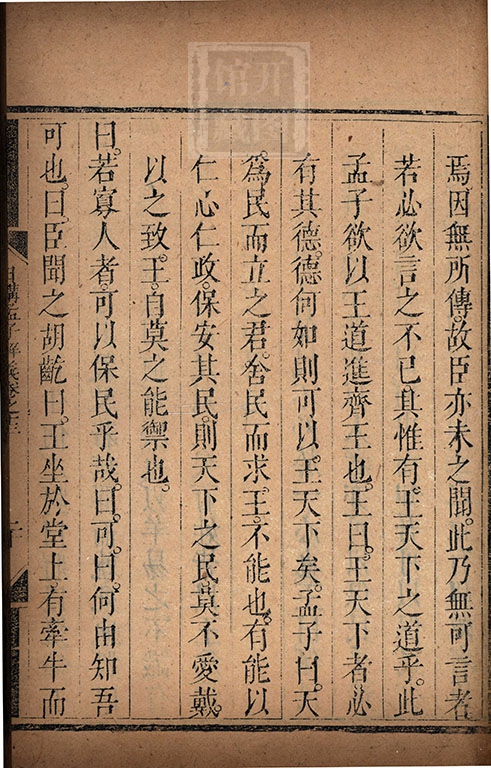 焉。因無所傳。故臣亦未之聞。此乃無可言者
若必欲言之不已。其惟有王天下之道乎。此
孟子欲以王道進齊王也。王曰。王天下者。必
有其德。德何如則可以王天下矣。孟子曰。天
爲民而立之君。舍民而求王。不能也。有能以
仁心仁政。保安其民。則天下之民。莫不愛戴。
以之致王。自莫之能禦也。
曰。若寡人者。可以保民乎哉。曰。可。曰。何由知吾
可也。曰。臣聞之胡齕曰。王坐於堂上。有牽牛而
日講孟子解義卷之三